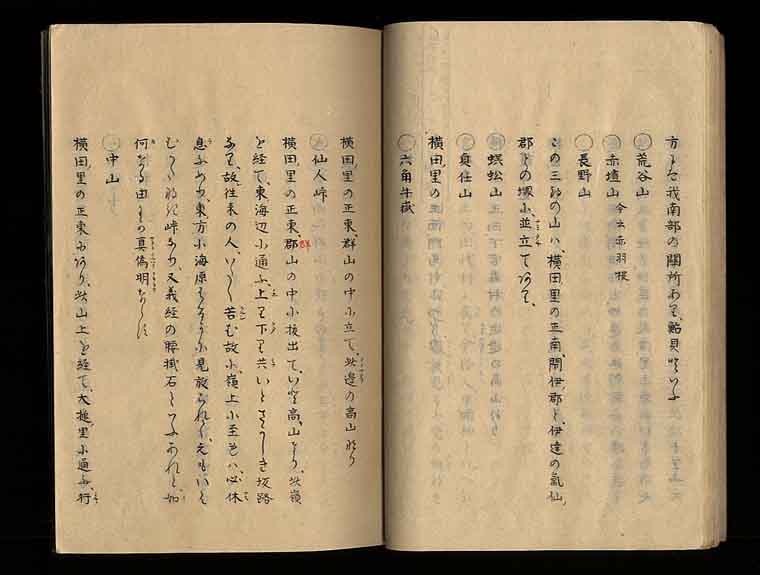 方にて我南部の關所あり、鮎貝村といふ
荒谷山
赤墟山 今云赤羽根
長野山
この三的の山ハ、横田里の正南、閇伊郡と、伊達の氣仙
郡との堺小並立てあり、
蜈蚣山
貞任山
横田里の
六角牛嶽
横田里の正東、群山の中小立て、此邊の高山なり
仙人峠
横田里の正東、郡山の中小抜出て、いと高山なり、此嶺
群
を経て、東海辺小通ふ、上り下り共いとさかしき坂路
なり、故往来の人、いたく苦む故小、嶺上小至れハ、必休
息ふめり、東方小海原もはろかに見放られて、えもいハ
む
峠なり、又義経の腰掛石といふあれと、如
何なる由りの真偽明ならす
中山
横田里の正東にあり、此山上を経て、大槌里小通ふ、行